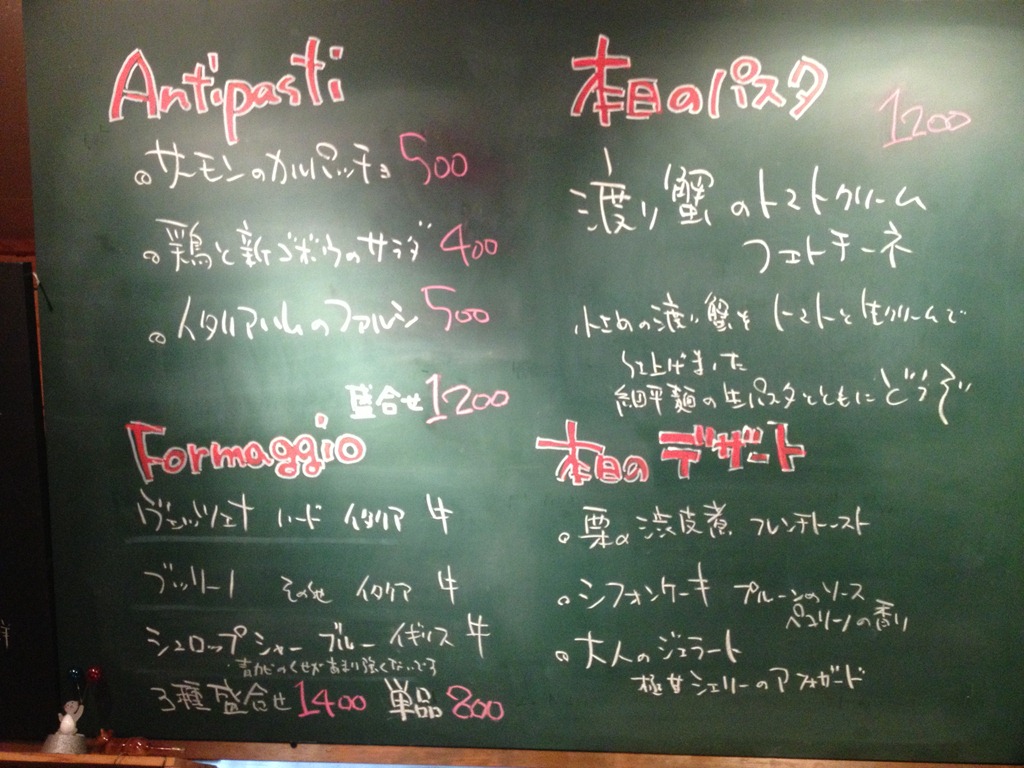 Antipasti
サーモンのカルパッチョ 500
鶏と新ゴボウのサラダ 400
イタリアハムのファルシ 500
盛合せ 1200
Formaggio
ハード イタリア 牛
ブッリーノ その他 イタリア 牛
シュロップシャーブルー イギリス 牛
青カビのくせがあまり強くないです
3種盛合せ 1400 単品 800
本日のパスタ
1200
渡り蟹のトマトクリーム
フェトチーネ
小さめの渡り蟹をトマトと生クリームで
仕上げました
細平麺の生パスタとともにどうぞ
本日のデザート
栗の渋皮煮 フレンチトースト
シフォンケーキ プルーンのソース
の香り
大人のジェラート
極甘シェリーのアフォガード